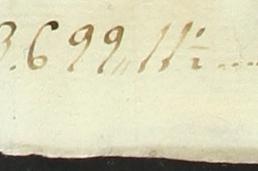 3.699,,11½....